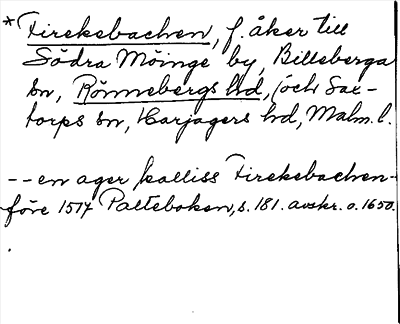 *Fireksbachen, f. åker till
Södra Möinge by, Billeberga
sn, Rönnebergs hd, (och Sax-
torps sn, Harjagers hd, Malm. l.
-- en ager kalliss Fireksbachen -
före 1517 Palteboken, s. 181. avskr. o. 1650.